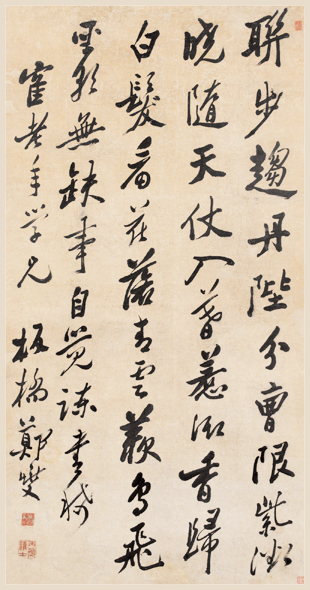 聯步趨丹陛分曹限紫微
曉隨天仗入暮惹御香歸
白髮看花落青雲羨鳥飛
聖朝無缺事自覺諫書稀
寉老年學兄 板橋鄭燮